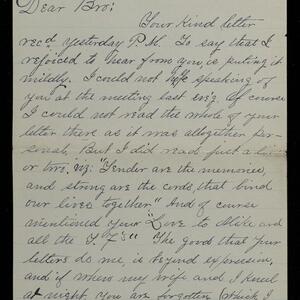 Dear Bro:
Your kind letter
recd. yesterday P.M. To say that I
rejoiced to hear from you, is putting it
mildly. I could not help speaking of
you at the meeting last ev'g. Of course
I could not read the whole of your
letter there as it was altogether per-
sonal, But I did read just a line
or two. viz: "Tender are the memories,
and strong are the cords, that bind
our lives together" And of course
mentioned your "Love to
all the The good that your
letters do me, is beyond expression,
and if when my wife and I kneel
at night you are forgotten (which I